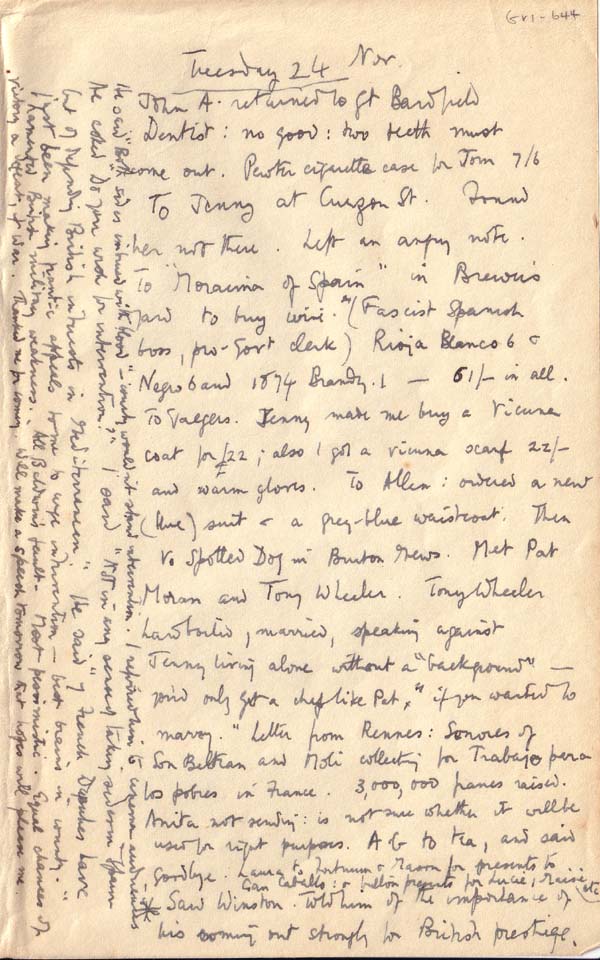 GV1-644
Tuesday 24 Nov.
John A. returned to Gt Bardfield
Dentist: no good: two teeth must
come out. Pewter cigarette case for Tom 7/6
To Jenny at Curzon St. Found
her not there. Left an angry note.
To "Moraima of Spain" in Brewers
Yard to buy wine. (Fascist Spanish
boss, pro-Govt clerk) Rioja Blanco 6 &
Negro 6 and 1874 Brandy. 1 — 61/- in all.
To Jaegers. Jenny made me buy a vicuna
coat for £22; also I got a vicuna scarf 22/-
and warm gloves. To Allen: ordered a new
(blue) suit & a grey-blue waistcoat. Then
to Spotted Dog in Bruton Mews. Met Pat
Moran and Tony Wheeler. Tony Wheeler
hardboiled, married, speaking against
Jenny living alone without a "background" —
you'd only get a chef like Pat, "if you wanted to
marry." Letter from Rennes: Sonores of
Son Beltran and Moli collecting for Trabajo para
los pobres in France. 3,000,000 francs raised.
Anita not sending: is not sure whether it will be
used for right purposes. AG to tea, and said
goodbye. Laura to Fortnum & Mason for presents to
Can Caballo: & presents for Lucie, Maisie etc
Saw Winston. Told him of the importance of
his coming out strongly for British prestige.
He said "Both sides imbrued with blood – country would not stand intervention. I
He asked "Do you wish for intervention?" I said "Not in any sense of taking sides in Spain
but of defending British interests in Mediterranean." He said "French Deputies have
just been making frantic appeals to me to urge intervention — best brains in country."
Lamented British military weakness. All Baldwin's fault. Most pessimistic. Equal chances of
victory & defeat, if War. Thanked me for coming. Will make a speech tomorrow that hopes will please me.